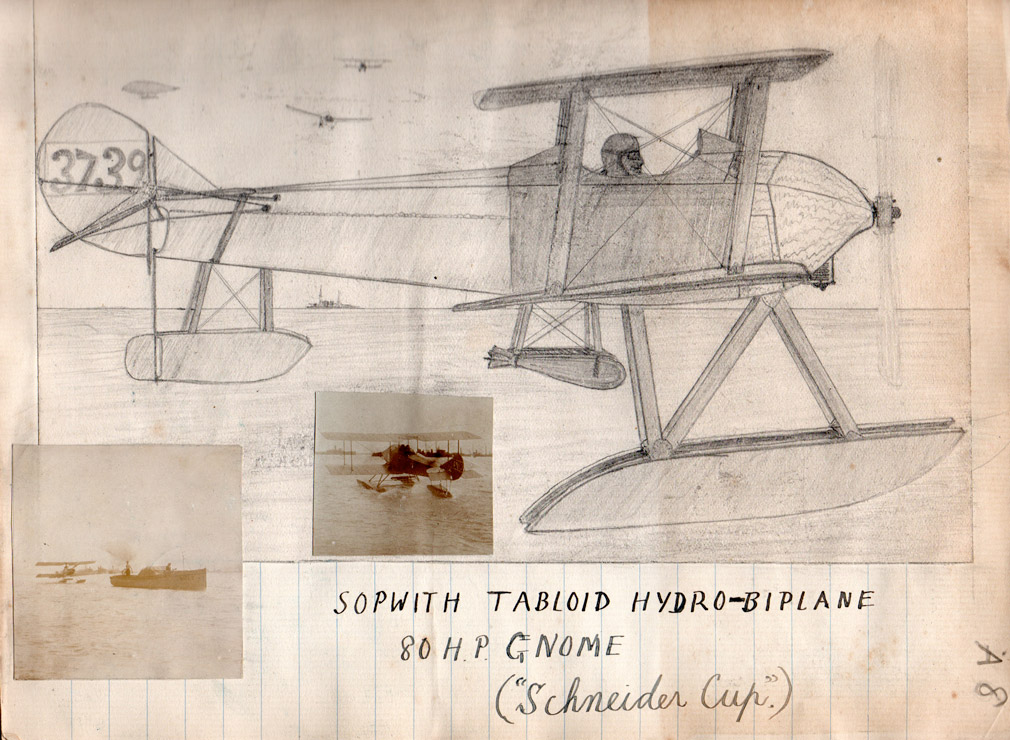 37.39
SOPWITH TABLOID HYDRO-BIPLANE
80 H.P. GNOME
("Schneider Cup.")
A8